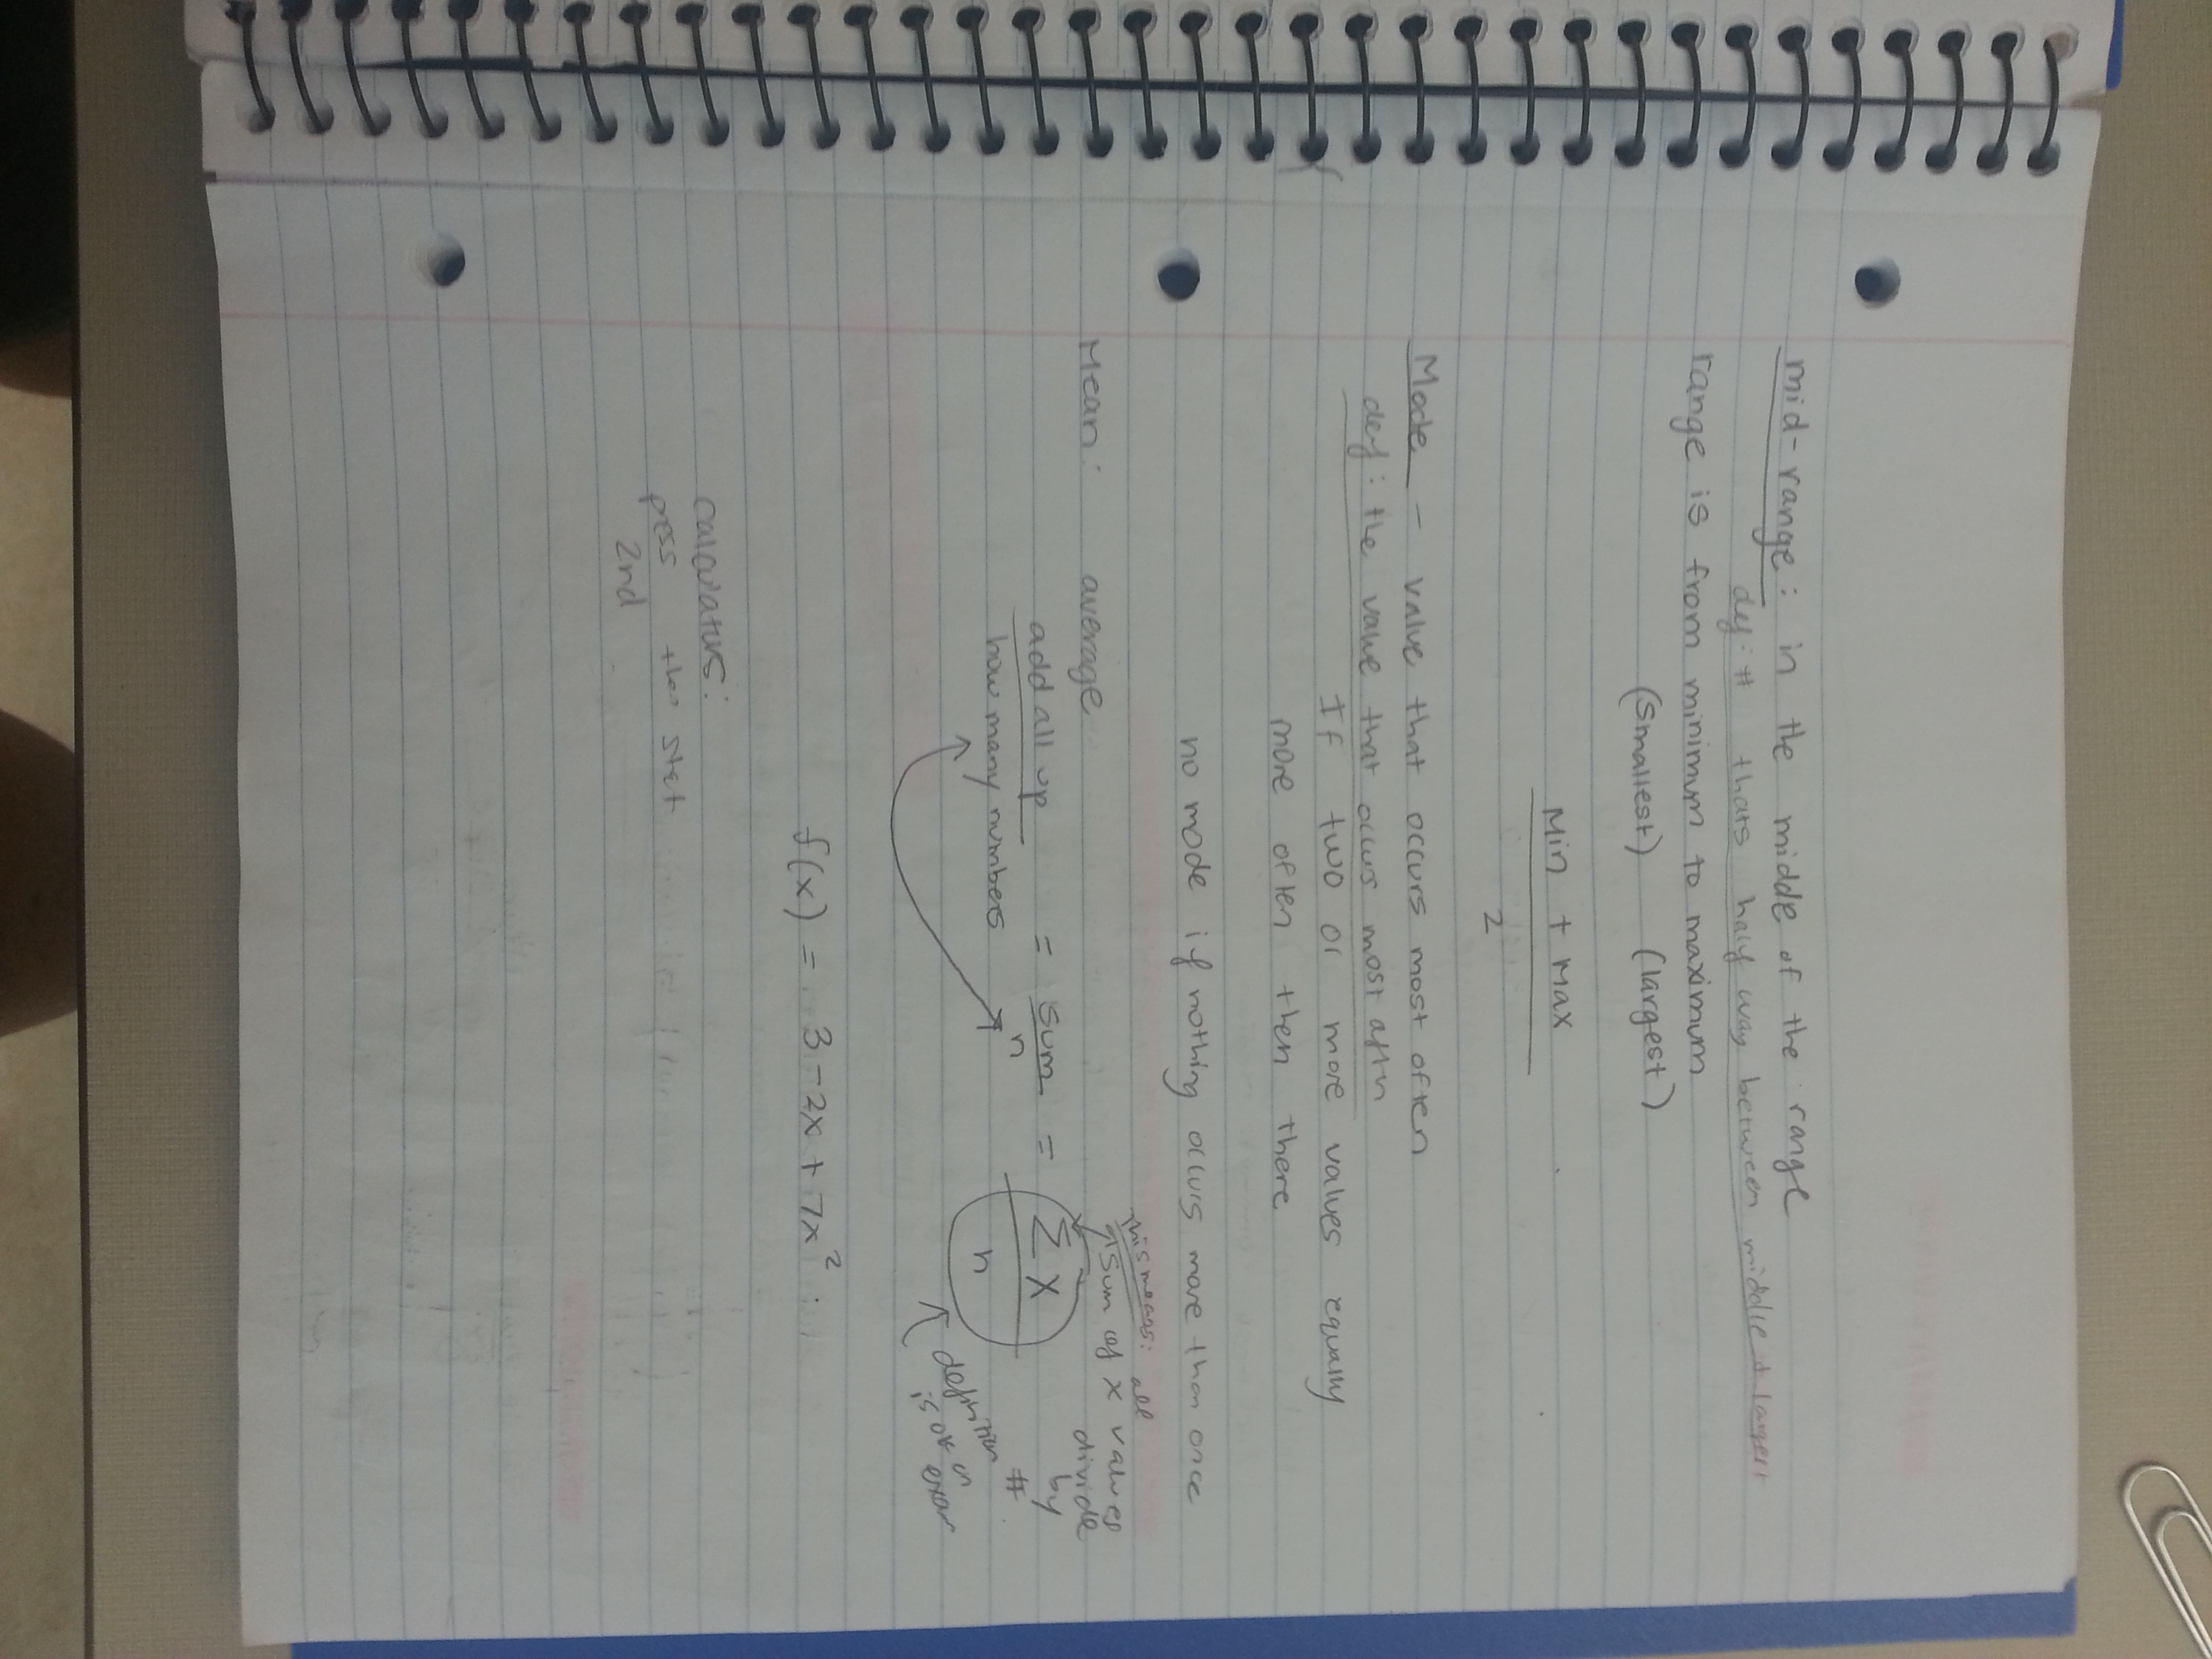 mid-range: in the middle of the range
def: # thats half way between middle & largest
range is from minimum to maximum
(smallest) (largest)
Min + Max
2
Mode - value that occurs most often
def: the value that occurs most often
If two or more values equally
more often then there
no mode if nothing occurs more than once
this means: all
Sum of x values
divide
by
#
Mean: average
add all up = sum = Σx
how many numbers n n
definition
is on
exam
f(x) = 3-2x+7x²
calculators:
press then stat
2nd